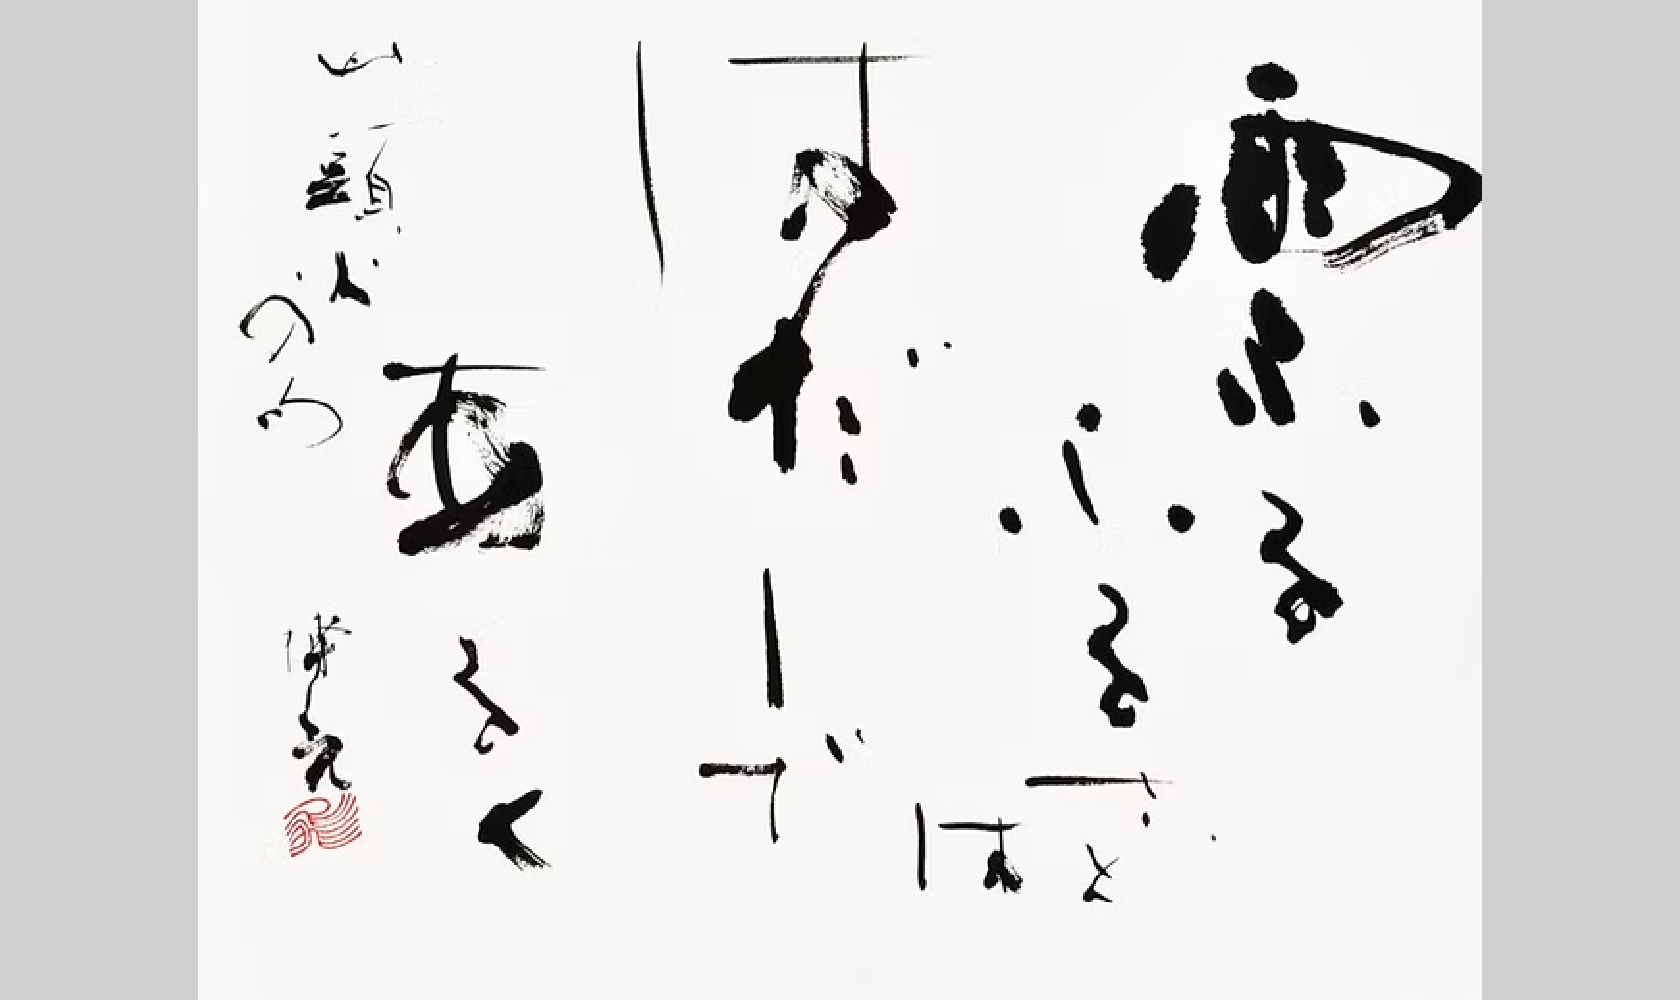 雨ふる
ふるさと
は
はだしで
あるく
山頭火